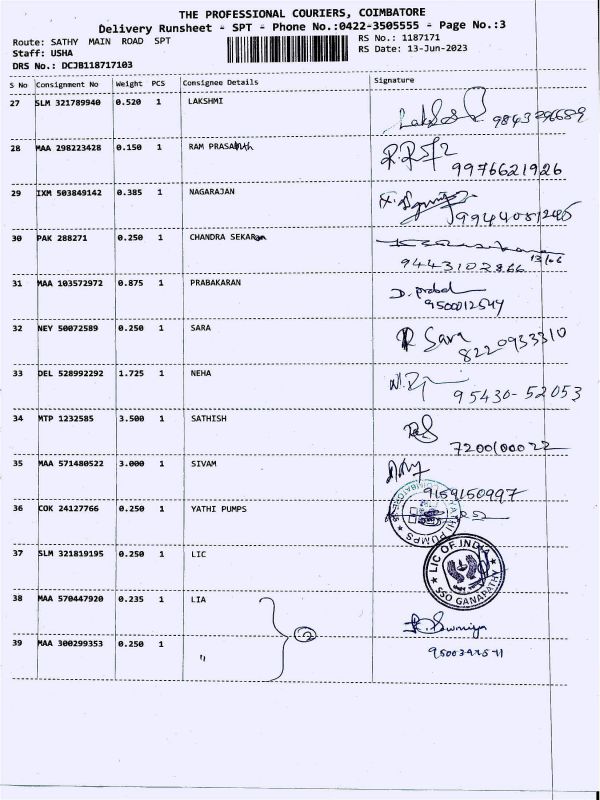 THE PROFESSIONAL COURIERS, COIMBATORE
Delivery Runsheet - SPT - Phone No.:0422-3505555 - Page No.:3
Route: SATHY MAIN ROAD SPT
Staff: USHA
DRS No.: DCJB118717103
RS No.: 1187171
RS Date: 13-Jun-2023
S No Consignment No Weight PCS Consignee Details Signature
27 SLM 321789940 0.520 1 LAKSHMI
28 MAA 298223428 0.150 1 RAM PRASA
9976621926
29 IXM 503849142 0.385 1 NAGARAJAN
30 PAK 288271 0.250 1 CHANDRA SEKARan
9443102866 13/06
31 MAA 103572972 0.875 1 PRABAKARAN
9500012547
32 NEY 50072589 0.250 1 SARA
R Sara
8220933310
33 DEL 528992292 1.725 1 NEHA
95430-52053
34 MTP 1232585 3.500 1 SATHISH
7200100022
35 MAA 571480522 3.000 1 SIVAM
9159150997
36 COK 24127766 0.250 1 YATHI PUMPS
37 SLM 321819195 0.250 1 LIC
LIC OF INDIA
SSO GANAPATHY
38 MAA 570447920 0.235 1 LIA
2
39 MAA 300299353 0.250 1 "